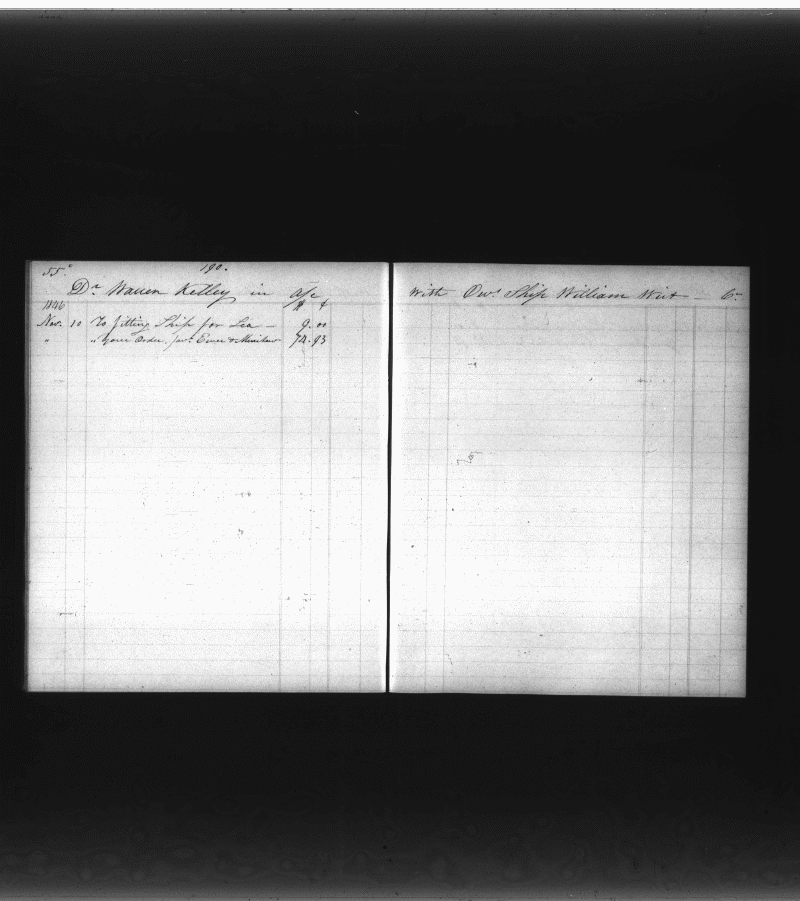 55 190.
Dr. Warren Kelley in a/c with Ows. Ship William Wirt — Cr
1846 $ ¢
Nov. 10 To fitting Ship for Sea — 9.00
" " your Order, fav. & 74.93